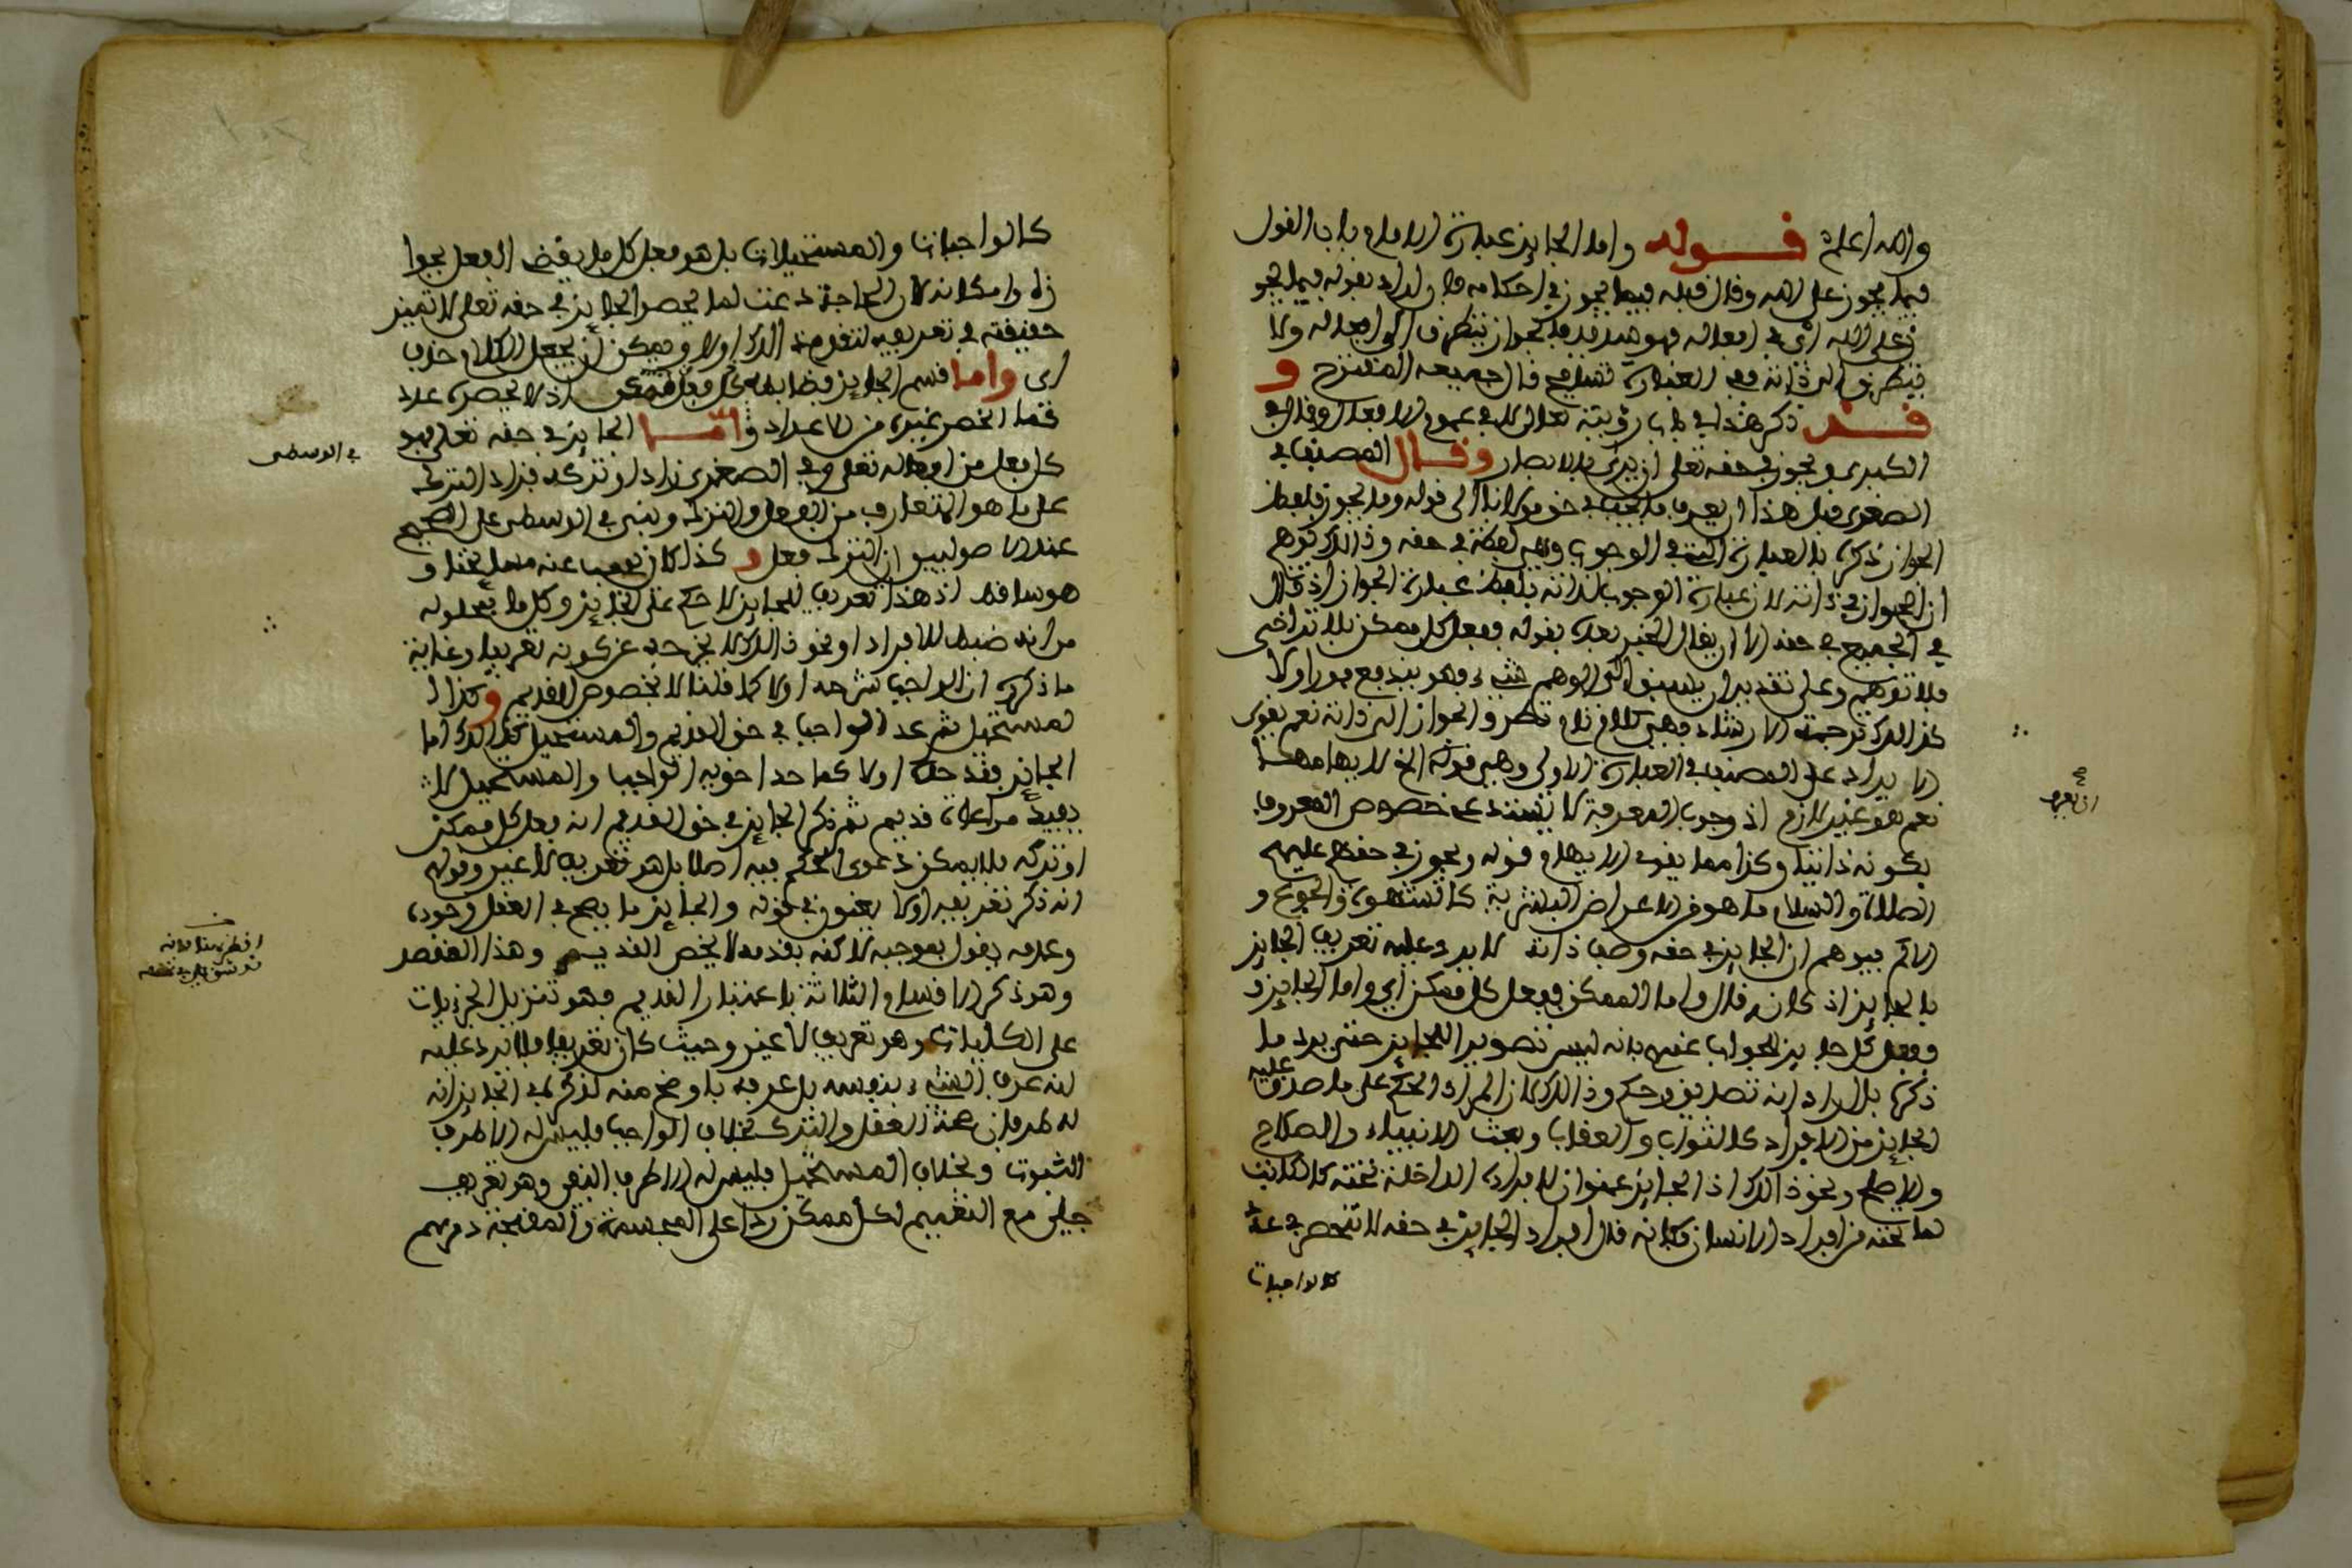 والله اعلم قوله واما الجايز عبارة الامام باب القول
فيما يجوز على الله وقال قبله فيما يجوز في احكامه والمراد بقوله فيما يجو
ز على الله اي في افعاله فهو الجواز يتطرق الى افعاله ولا
يتطرق الى ذاته ففي العبارة تسامح قال جميعه المقترح و
قد ذكر هذا في باب رؤيته تعالى لا في عموم الافعال وقال في
الكبرى ويجوز في حقه تعلى ان يرى بالابصار وقال المصنف في
الصغرى قبل هذا ان يعرف ما يجب في حق مولانا الى قوله وما يجوز فلفظ
الجواز ذكره بالعبارة التي في الوجوب وهي لفظة في حقه وذالك توهم
ان الجواز في ذاته لان عبارة الوجوب لذاته بلفظ عبارة الجواز اذ قال
في الجميع في حقه الا ان يقال الخبر بعده بقوله ففعل كل ممكن بلا تراخى
فلا توهم وعلى تقدير ان يسبق الى الوهم شيء فهو يندفع فورا ولا
كذالك ترجمة الارشاد فهي كلام تام تطرق الجواز الى ذاته نعم يقوى
الايراد على المصنف في العبارة الاولى وهي قوله الخ لابهامها
نعم هو غير لازم اذ وجوب المعرفة لا يستدعي خصوص المعروف
بكونه ذاتيا وكذا مما يقوي الايهام قوله ويجوز في حقهم عليهم
الصلاة والسلام ما هو من الاعراض البشرية كالشهوة والجوع و
الالم فيوهم ان الجايز في حقه وصف ذاته لا يرد عليه تعريف الجايز
بالجايز اذ كانه قال واما الممكن ففعل كل ممكن اي واما الجايز
ففعل كل جايز الجواب عنهم بانه ليس تصوير الجايز حتى يرد ما
ذكره بل المراد انه تصديق وحكم وذالك ان المراد الحكم على ما صدق عليه
الجايز من الافراد كالثواب والعقاب وبعث الانبياء والصلاح
والاصلح ونحو ذالك اذ الجايز عنوان لافراده الداخلة تحته كالكاتب
لما تحته من افراد الانسان فكانه قال افراد الجايز في حقه لا تنحصر في عدد
كالواجبات
ان يعرف
كالواجبات والمستحيلات بل هو فعل كل ما يقضي العقل بجوا
زه وامكانه لان الحاجة دعت لما يحصر الجايز في حقه تعلى لا تمييز
حقيقته في تعريفه لتقدم ذالك اولا ويمكن ان يجعل الكلام حذف
اى واما قسم الجايز اذ لا يحصره عدد
فما انحصر غيره من الاعداد واما الجايز في حقه تعلى فهو
كل فعل من افعاله تعلى وفي الصغرى زاد او تركه فزاد الترك
على ما هو المتعارف من الفعل والترك وبنى في الوسطى على الصحيح
عند الاصوليين ان الترك فعل وكذا كان
هو ساقط اذ هذا تعريف للجايز لا حكم على الجايز وكل ما
من انه ضبط للافراد او نحو ذالك لا يخرجه عن كونه تعريفا وغاية
ما ذكره ان الواجب شرحه اولا كما قلنا لا بخصوص القديم وكذا ا
لمستحيل ثم عد الواجب في حق القديم والمستحيل كذالك اما
الجايز فقد حده اولا كما حد اخويه الواجب والمستحيل لا
بقيد مراعاة قديم ثم ذكر الجايز في حق القديم انه فعل كل ممكن
او تركه فلا يمكن دعوى الحكم فيه اصلا بل هو تعريف لا غير وقولهم
انه ذكر تعريفه اولا يعنون في قوله والجايز ما يصح في العقل وجوده
وعدمه يقول بموجبه لاكنه بقدمه لا يخص القديم وهذا المقصد
وهو ذكر الاقسام الثلاثة باعتبار القديم فهو تنزيل الجزئيات
على الكليات وهو تعريف لا غير وحيث كان تعريفا فلا يرد عليه
انه عرف الشيء بنفسه بل عرفه باوضح منه لذكره في الجايز انه
له طرفان عند العقل والترك بخلاف الواجب فليس له الا طرف
الثبوت وبخلاف المستحيل فليس له الا طرف النفي وهو تعريف
جلي مع التعميم لكل ممكن ردا على المجسمة والمقبحة دمرهم
في الوسطى